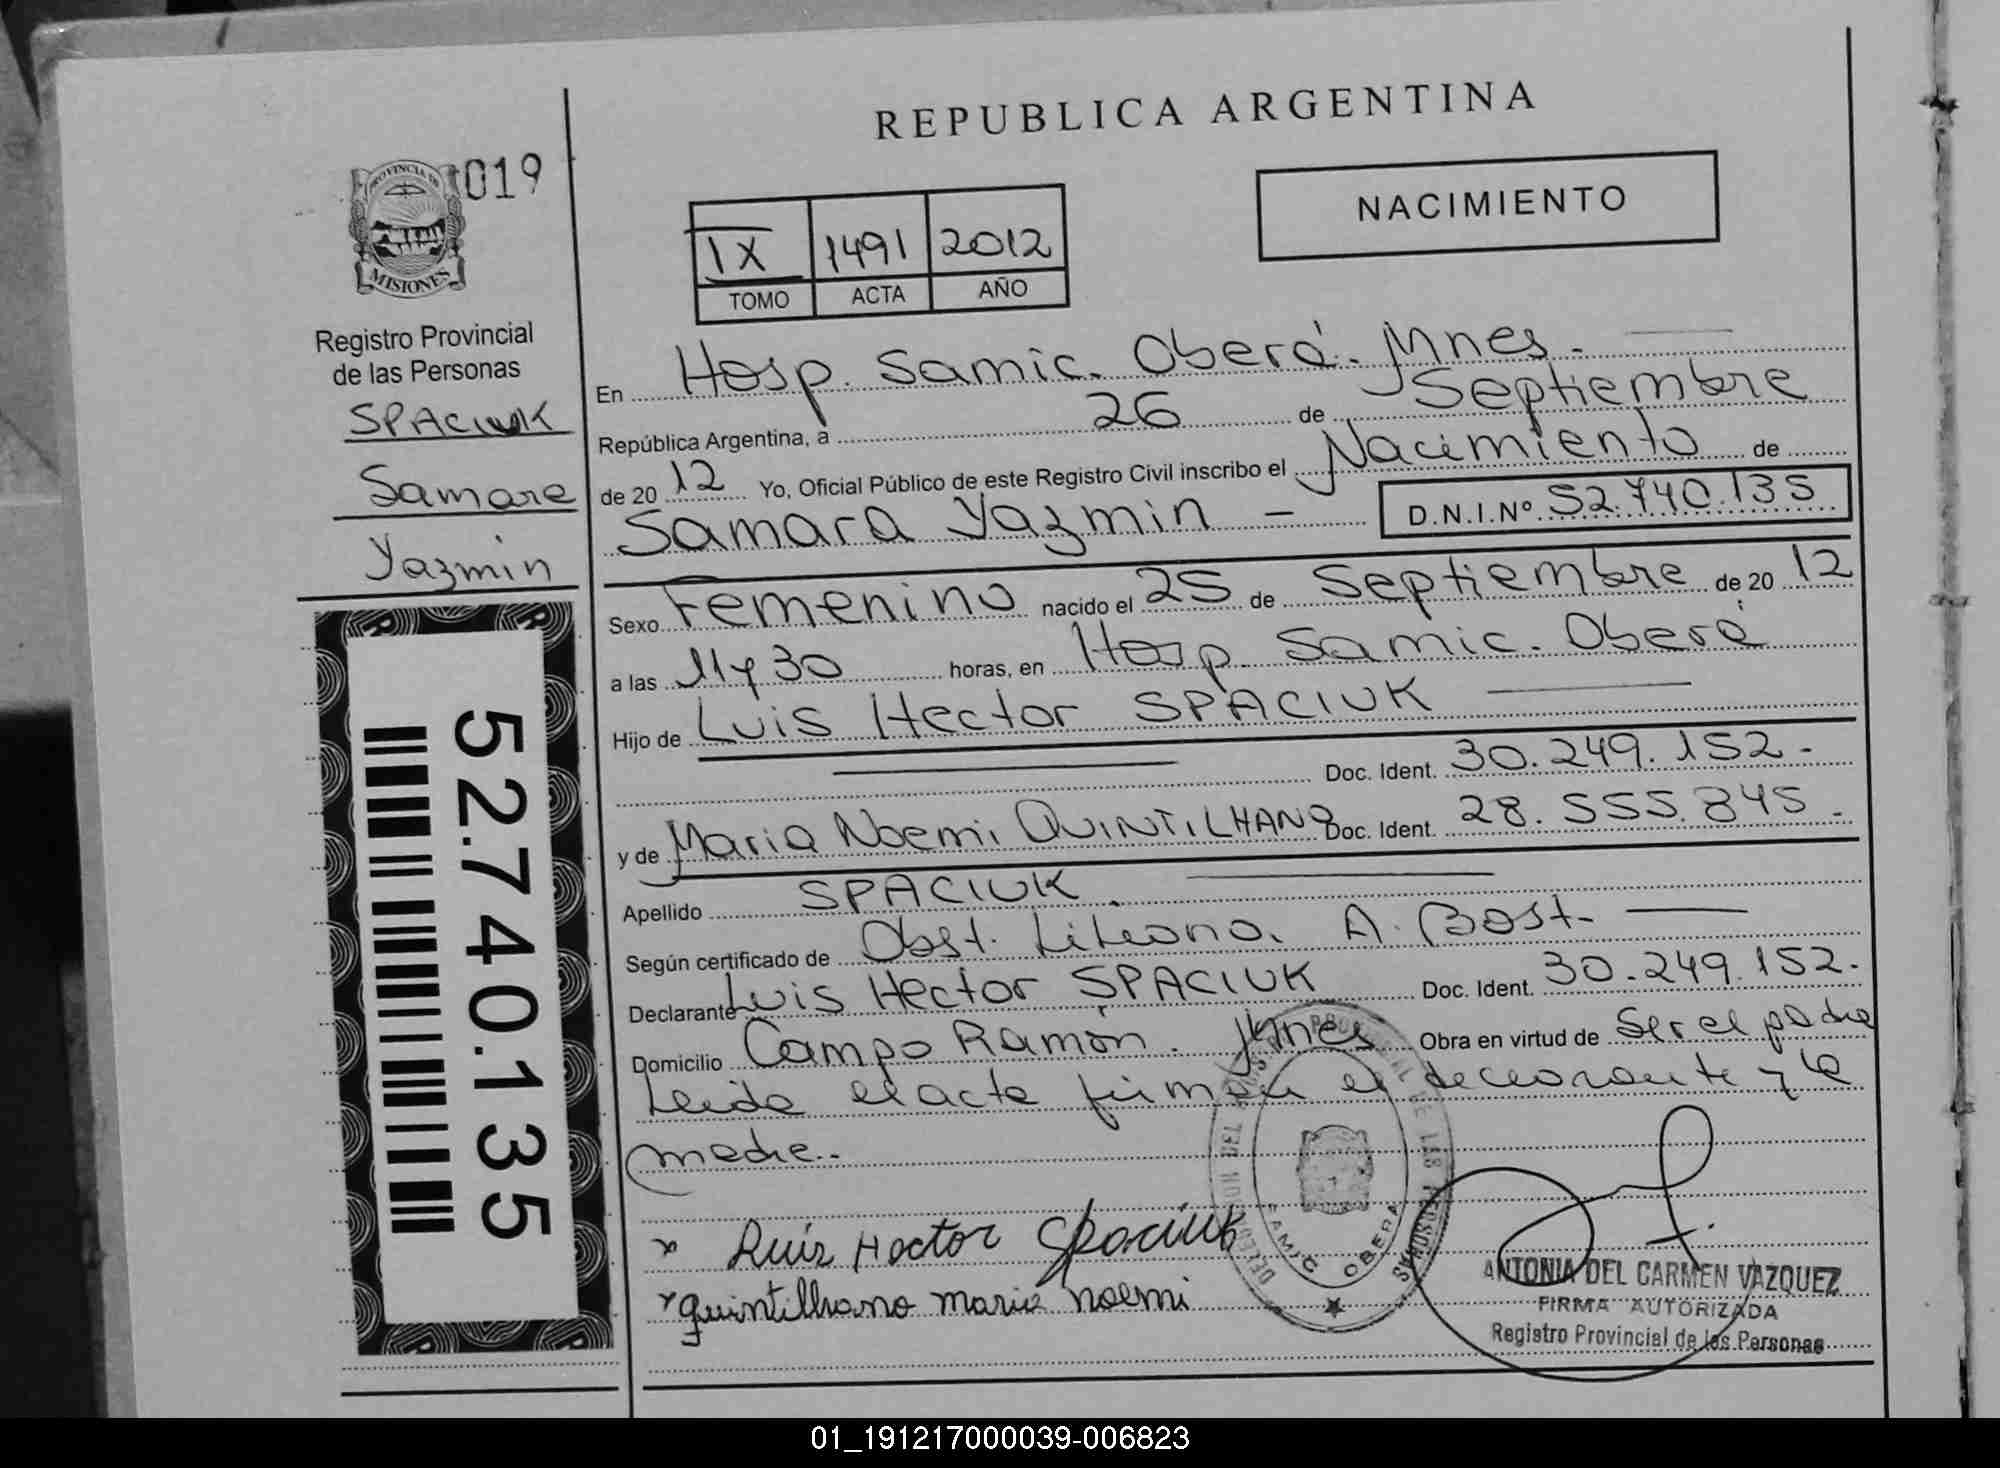 REPUBLICA ARGENTINA
019
PROVINCIA DE
MISIONES
NACIMIENTO
IX 1491 2012
TOMO ACTA AÑO
Registro Provincial
de las Personas
SPACIUK
Samara
Yazmin
52.740.135
En Hosp. Samic. Oberá. Mnes.
República Argentina, a 26 de Septiembre
de 20 12 Yo, Oficial Público de este Registro Civil inscribo el Nacimiento de
Samara Yazmin - D.N.I.Nº 52.740.135
Sexo Femenino nacido el 25 de Septiembre de 20 12
a las 11 y 30 horas, en Hosp. Samic. Oberá
Hijo de Luis Hector SPACIUK
Doc. Ident. 30.249.152.-
y de Maria Noemi QUINTILHANO Doc. Ident. 28.555.845.-
Apellido SPACIUK.
Según certificado de Obst. Liliana. A. Bost-
Declarante Luis Hector SPACIUK Doc. Ident. 30.249.152.-
Domicilio Campo Ramón. Mnes Obra en virtud de Ser el padre
Leida el acta firman el declarante y la
madre..
x Luis Hector Spaciuk
x quintilhano maria noemi
SAMIC OBERA
ANTONIA DEL CARMEN VAZQUEZ
FIRMA AUTORIZADA
Registro Provincial de las Personas
01_191217000039-006823